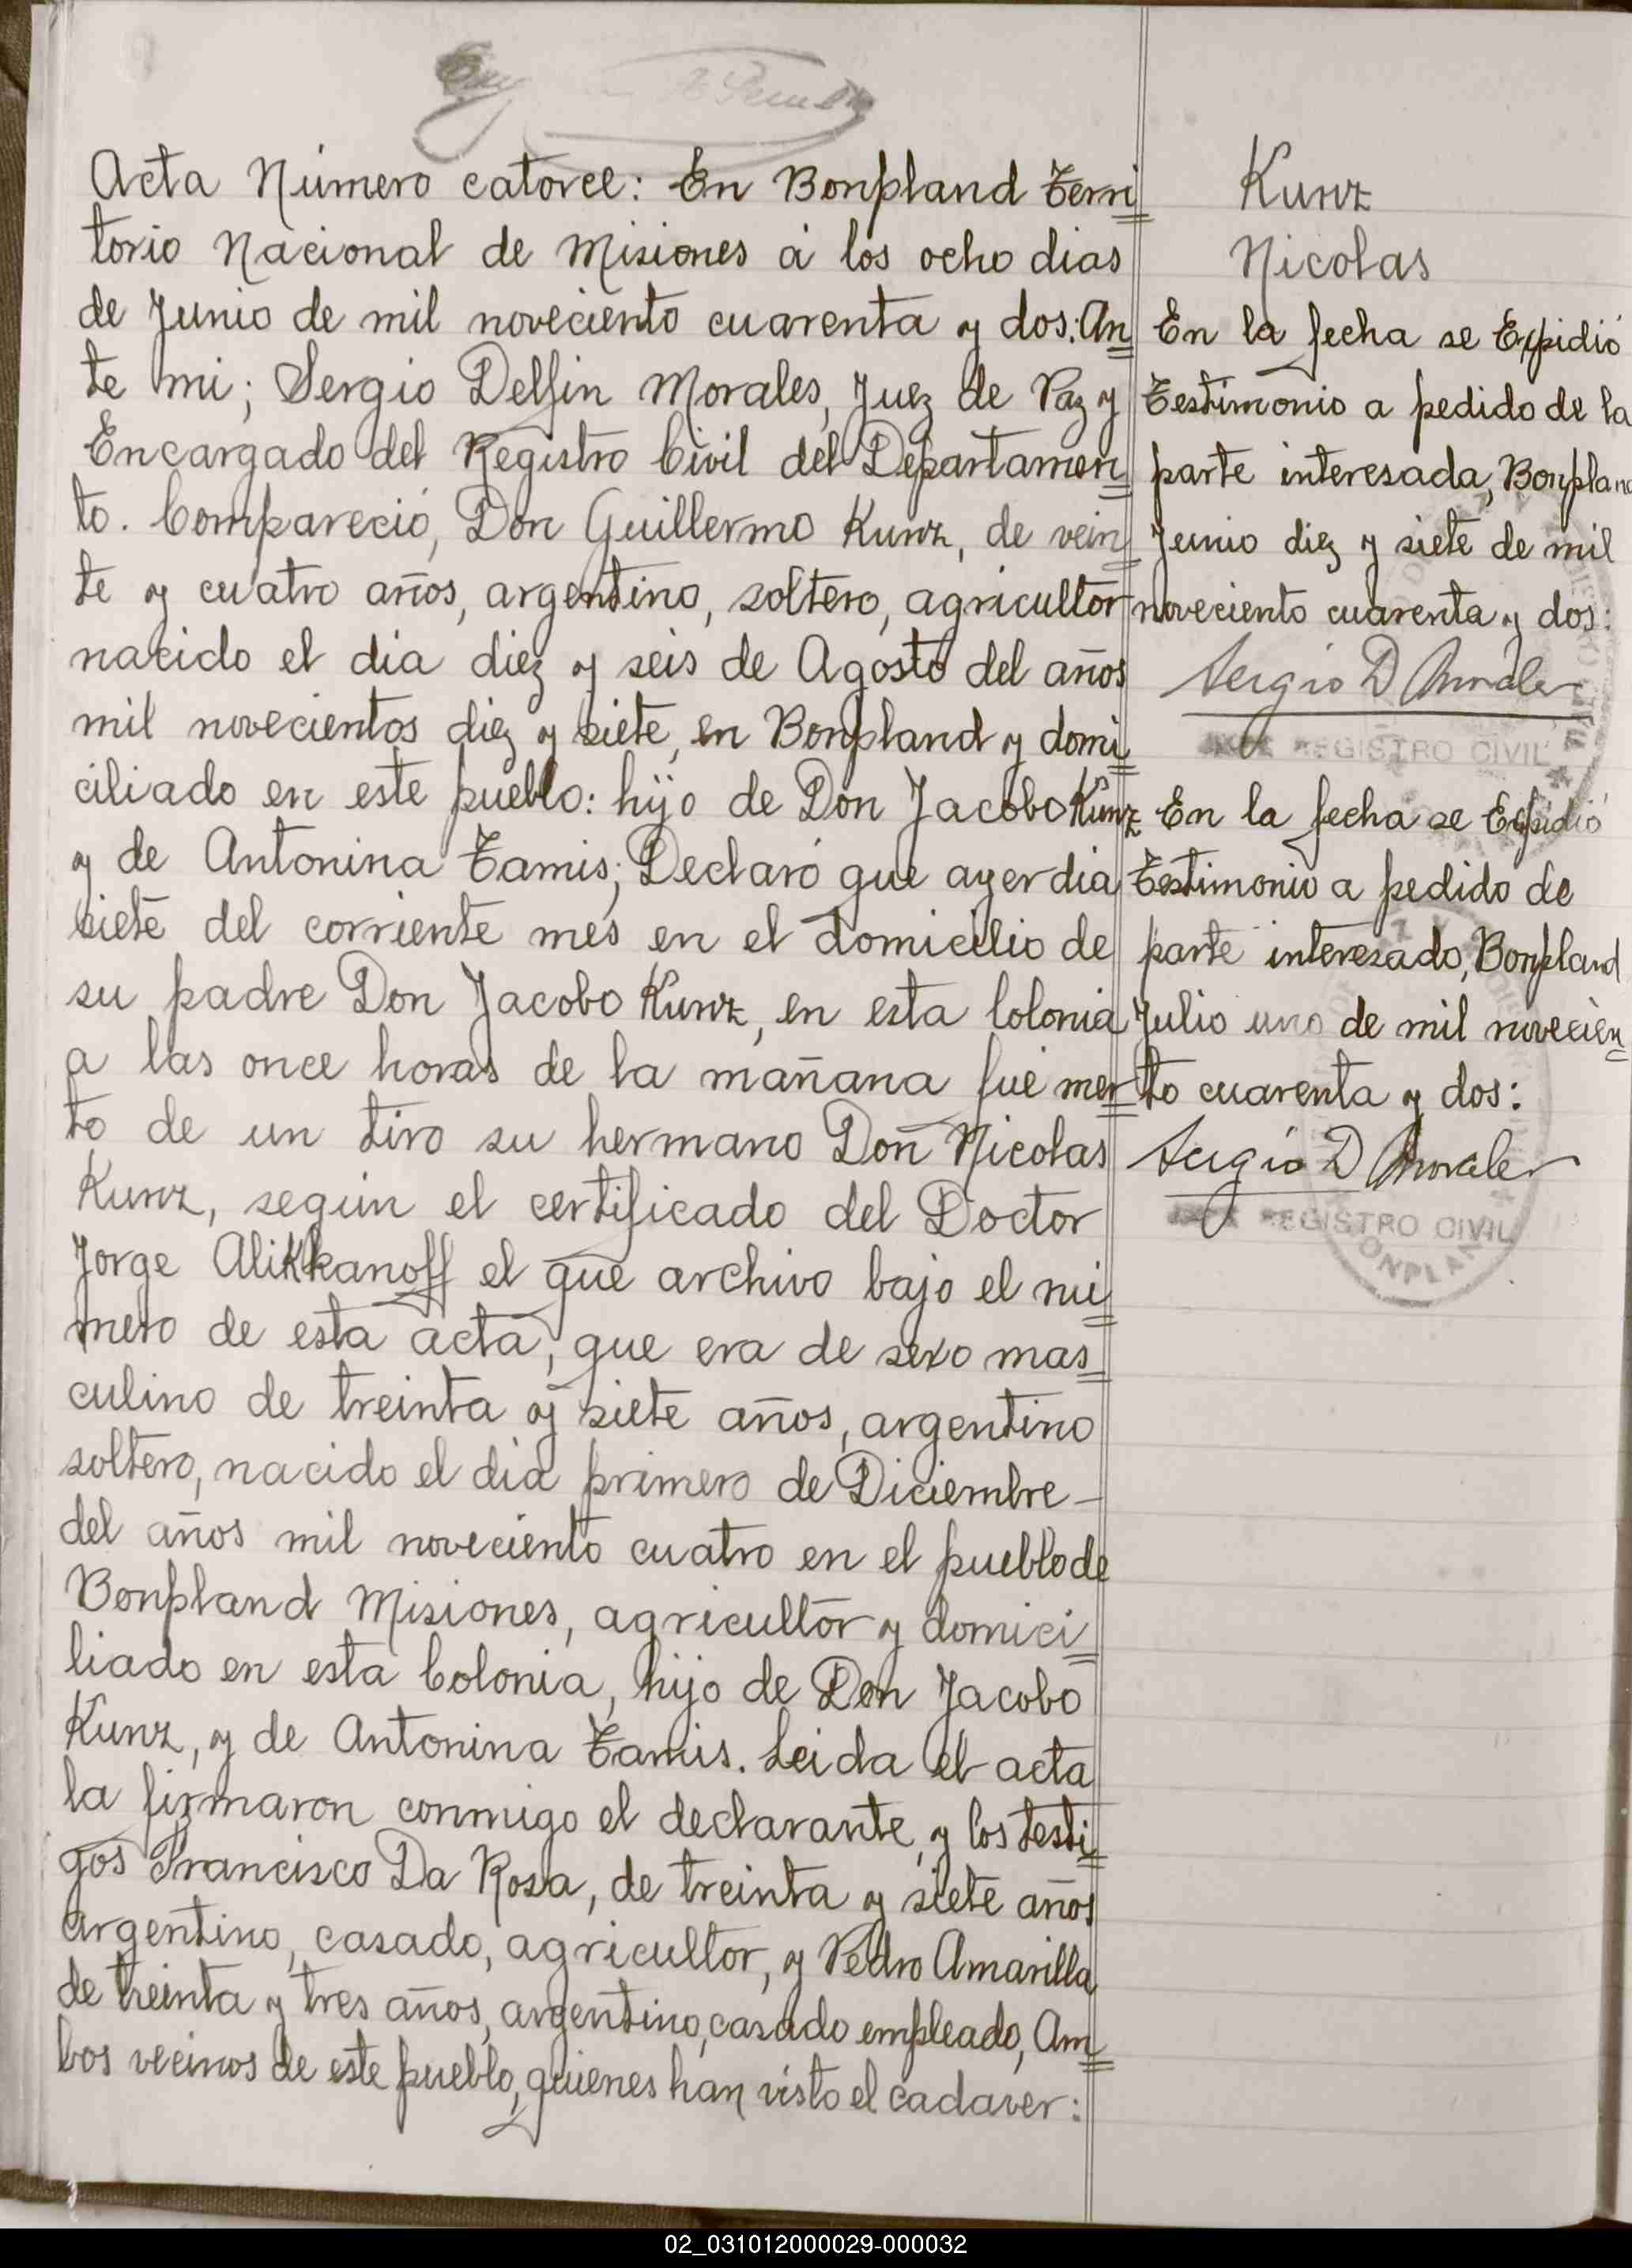 Acta Número catorce: En Bonpland Terri
torio Nacional de Misiones á los ocho dias
de Junio de mil noveciento cuarenta y dos: An
te mi; Sergio Delfin Morales, Juez de Paz y
Encargado del Registro Civil del Departamen
to. Compareció, Don Guillermo Kunz, de vein
te y cuatro años, argentino, soltero, agricultor
nacido el dia diez y seis de Agosto del años
mil novecientos diez y siete, en Bonpland y domi
ciliado en este pueblo: hijo de Don Jacobo Kunz
y de Antonina Tamis; Declaró que ayer dia
siete del corriente mes en el domicilio de
su padre Don Jacobo Kunz, en esta Colonia
a las once horas de la mañana fué mer
to de un tiro su hermano Don Nicolas
Kunz, según el certificado del Doctor
Jorge Alikkanoff el que archivo bajo el nú
mero de esta acta, que era de sexo mas
culino de treinta y siete años, argentino
soltero, nacido el dia primero de Diciembre -
del años mil noveciento cuatro en el pueblo de
Bonpland Misiones, agricultor y domici
liado en esta Colonia, hijo de Don Jacobo
Kunz, y de Antonina Tamis. Leida el acta
la firmaron conmigo el declarante, y los testi
gos Francisco Da Rosa, de treinta y siete años
argentino, casado, agricultor, y Pedro Amarilla
de treinta y tres años, argentino, casado empleado, Am
bos vecinos de este pueblo, quienes han visto el cadaver:
Kunz
Nicolas
En la fecha se Expidió
Testimonio a pedido de la
parte interesada, Bonpland
Junio diez y siete de mil
noveciento cuarenta y dos:
Sergio D Morales
REGISTRO CIVIL
En la fecha se Expidió
Testimonio a pedido de
parte interesado, Bonpland
Julio uno de mil novecien
to cuarenta y dos:
Sergio D Morales
REGISTRO CIVIL
BONPLAND
02_031012000029-000032